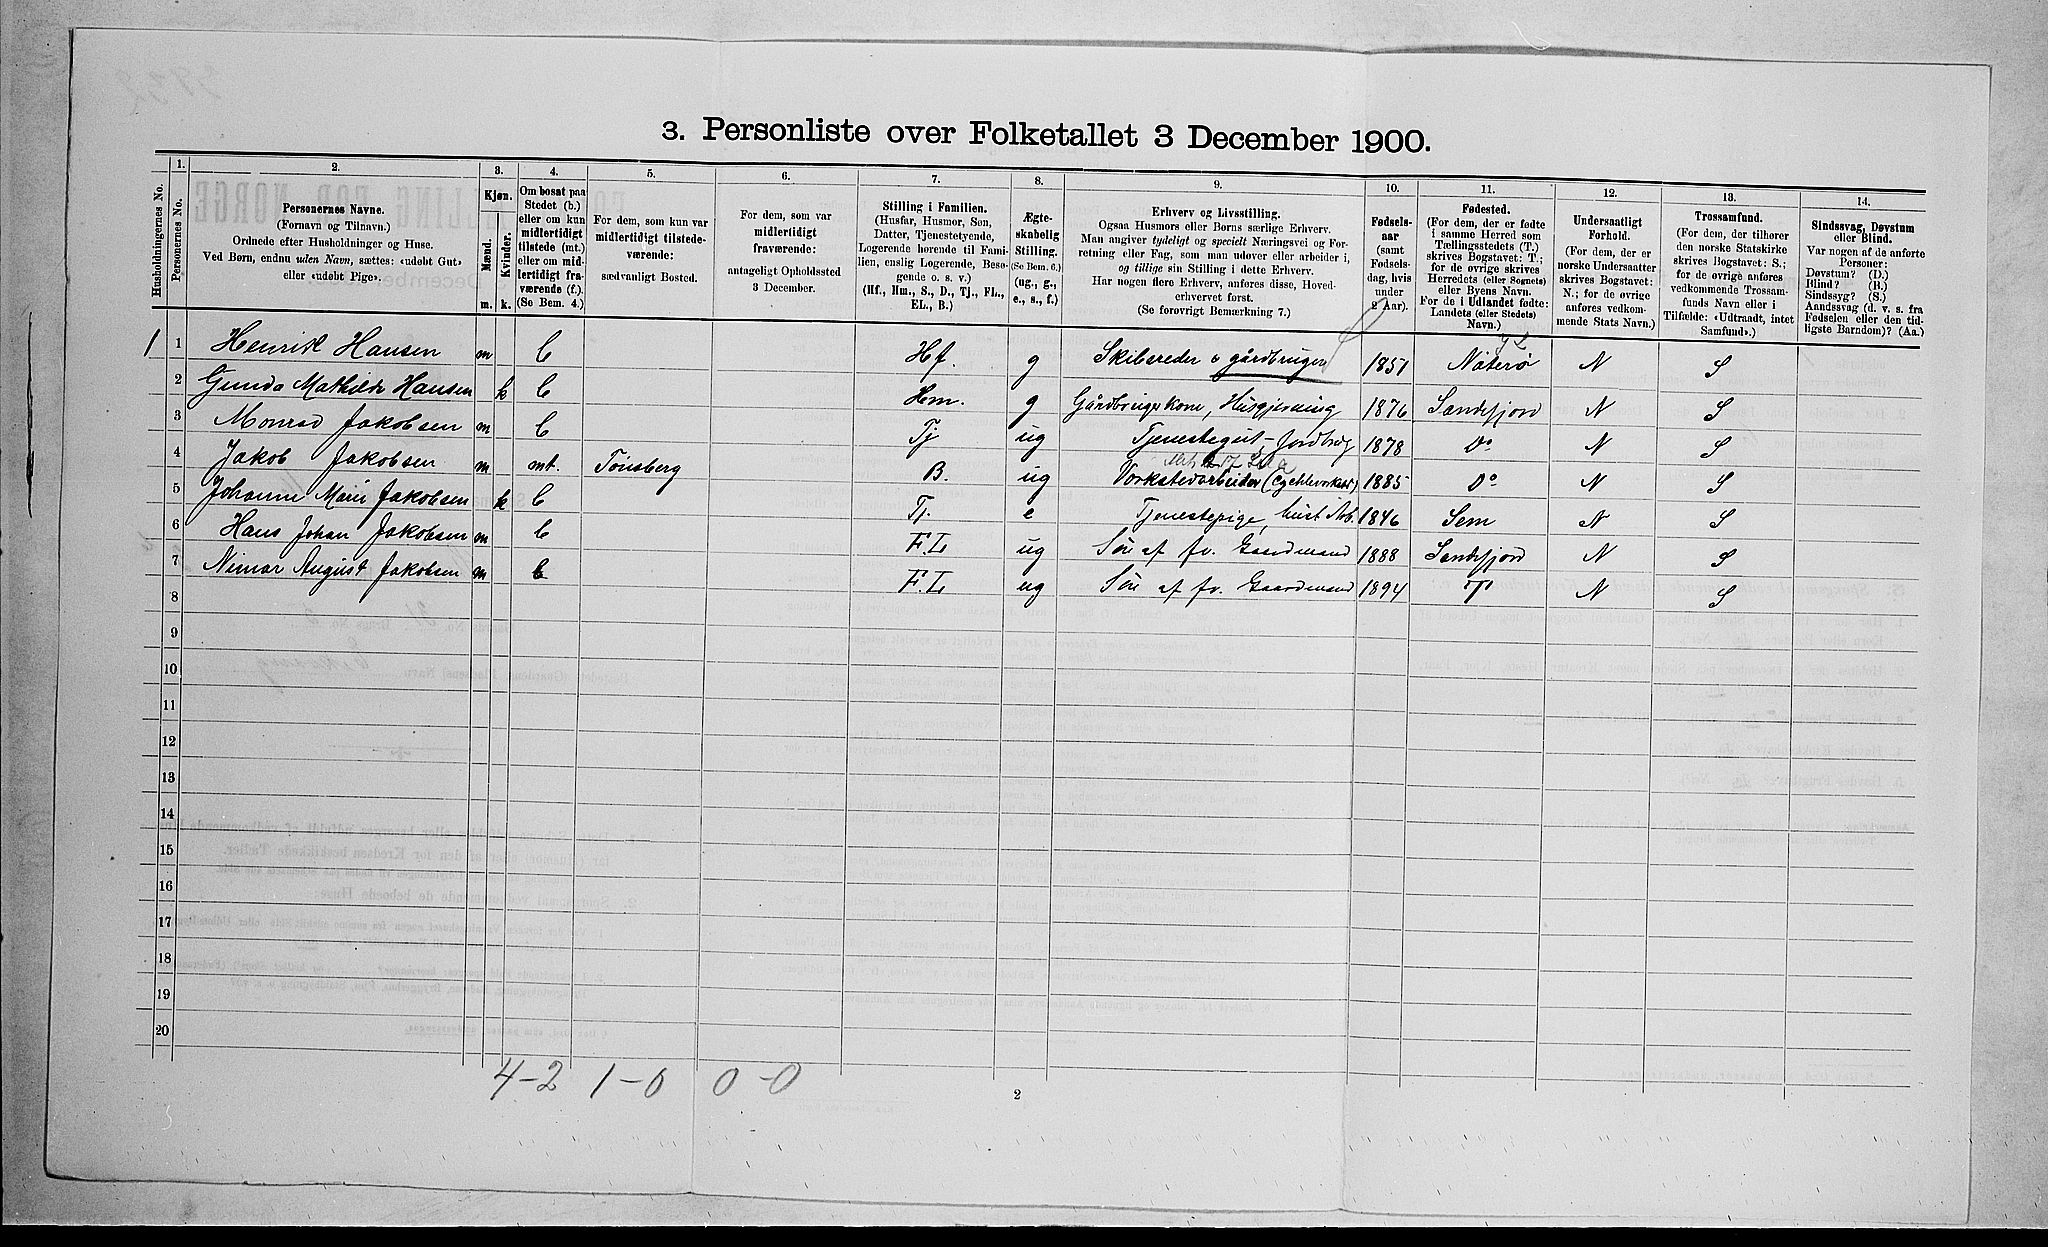 3. Personliste over Folketallet 3 December 1900.
Husholdningernes No.
1. Personernes No.
2. Personernes Navne.
(Fornavn og Tilnavn.)
Ordnede efter Husholdninger og Huse.
Ved Børn, endnu uden Navn, sættes: «udøbt Gut»
eller «udøbt Pige».
3. Kjøn.
Mænd. Kvinder.
m. k.
4. Om bosat paa
Stedet (b.)
eller om kun
midlertidigt
tilstede (mt.)
eller om mid-
lertidigt fra-
værende (f.).
(Se Bem. 4.)
5. For dem, som kun var
midlertidigt tilstede-
værende:
sædvanligt Bosted.
6. For dem, som var
midlertidigt
fraværende:
antageligt Opholdssted
3 December.
7. Stilling i Familien.
(Husfar, Husmor, Søn,
Datter, Tjenestetyende,
Logerende hørende til Fami-
lien, enslig Logerende, Besø-
gende o. s. v.)
(Hf., Hm., S., D., Tj., FL.,
EL., B.)
8. Ægte-
skabelig
Stilling.
(Se Bem. 6.)
(ug., g.,
e., s., f.)
9. Erhverv og Livsstilling.
Ogsaa Husmors eller Børns særlige Erhverv.
Man angiver tydeligt og specielt Næringsvei og For-
retning eller Fag, som man udøver eller arbeider i,
og tillige sin Stilling i dette Erhverv.
Har nogen flere Erhverv, anføres disse, Hoved-
erhvervet først.
(Se forøvrigt Bemærkning 7.)
10. Fødsels-
aar
(samt
Fødsels-
dag, hvis
under
2 Aar).
11. Fødested.
(For dem, der er fødte
i samme Herred som
Tællingsstedets (T.)
skrives Bogstavet: T.;
for de øvrige skrives
Herredets (eller Sognets)
eller Byens Navn.
For de i Udlandet fødte:
Landets (eller Stedets)
Navn.)
12. Undersaatligt
Forhold.
(For dem, der er
norske Undersaatter
skrives Bogstavet:
N.; for de øvrige
anføres vedkom-
mende Stats Navn.)
13. Trossamfund.
(For dem, der tilhører
den norske Statskirke
skrives Bogstavet: S.;
for de øvrige anføres
vedkommende Trossam-
funds Navn eller i
Tilfælde: «Udtraadt, intet
Samfund».)
14. Sindssvag, Døvstum
eller Blind.
Var nogen af de anførte
Personer:
Døvstum? (D.)
Blind? (B.)
Sindssyg? (S.)
Aandssvag (d. v. s. fra
Fødselen eller den tid-
ligste Barndom)? (Aa.)
1 1 Henrik Hansen m b Hf. g Skibsreder & gårdbruger 1851 Nøterø N S
2 Gunda Mathilde Hansen k b Hm. g Gårdbrugerkone, Husgjerning 1876 Sandefjord N S
3 Monrad Jakobsen m b Tj ug Tjenestegut-Jordbrug 1878 Do N S
4 Jakob Jakobsen m mt. Tønsberg B. ug Værkstedarbeider 1885 Do N S
5 Johanne Marie Jakobsen k b Tj. e Tjenestepige, hust Arb. 1846 Sem N S
6 Hans Johan Jakobsen m b F.L ug Søn af fv. Gaardmand 1888 Sandefjord N S
7 Nimar August Jakobsen m b F.L ug Søn af fv. Gaardmand 1894 T N S
8
9
10
11
12
13
14
15
16
17
18
19
20
4-2 1-0 0-0
2